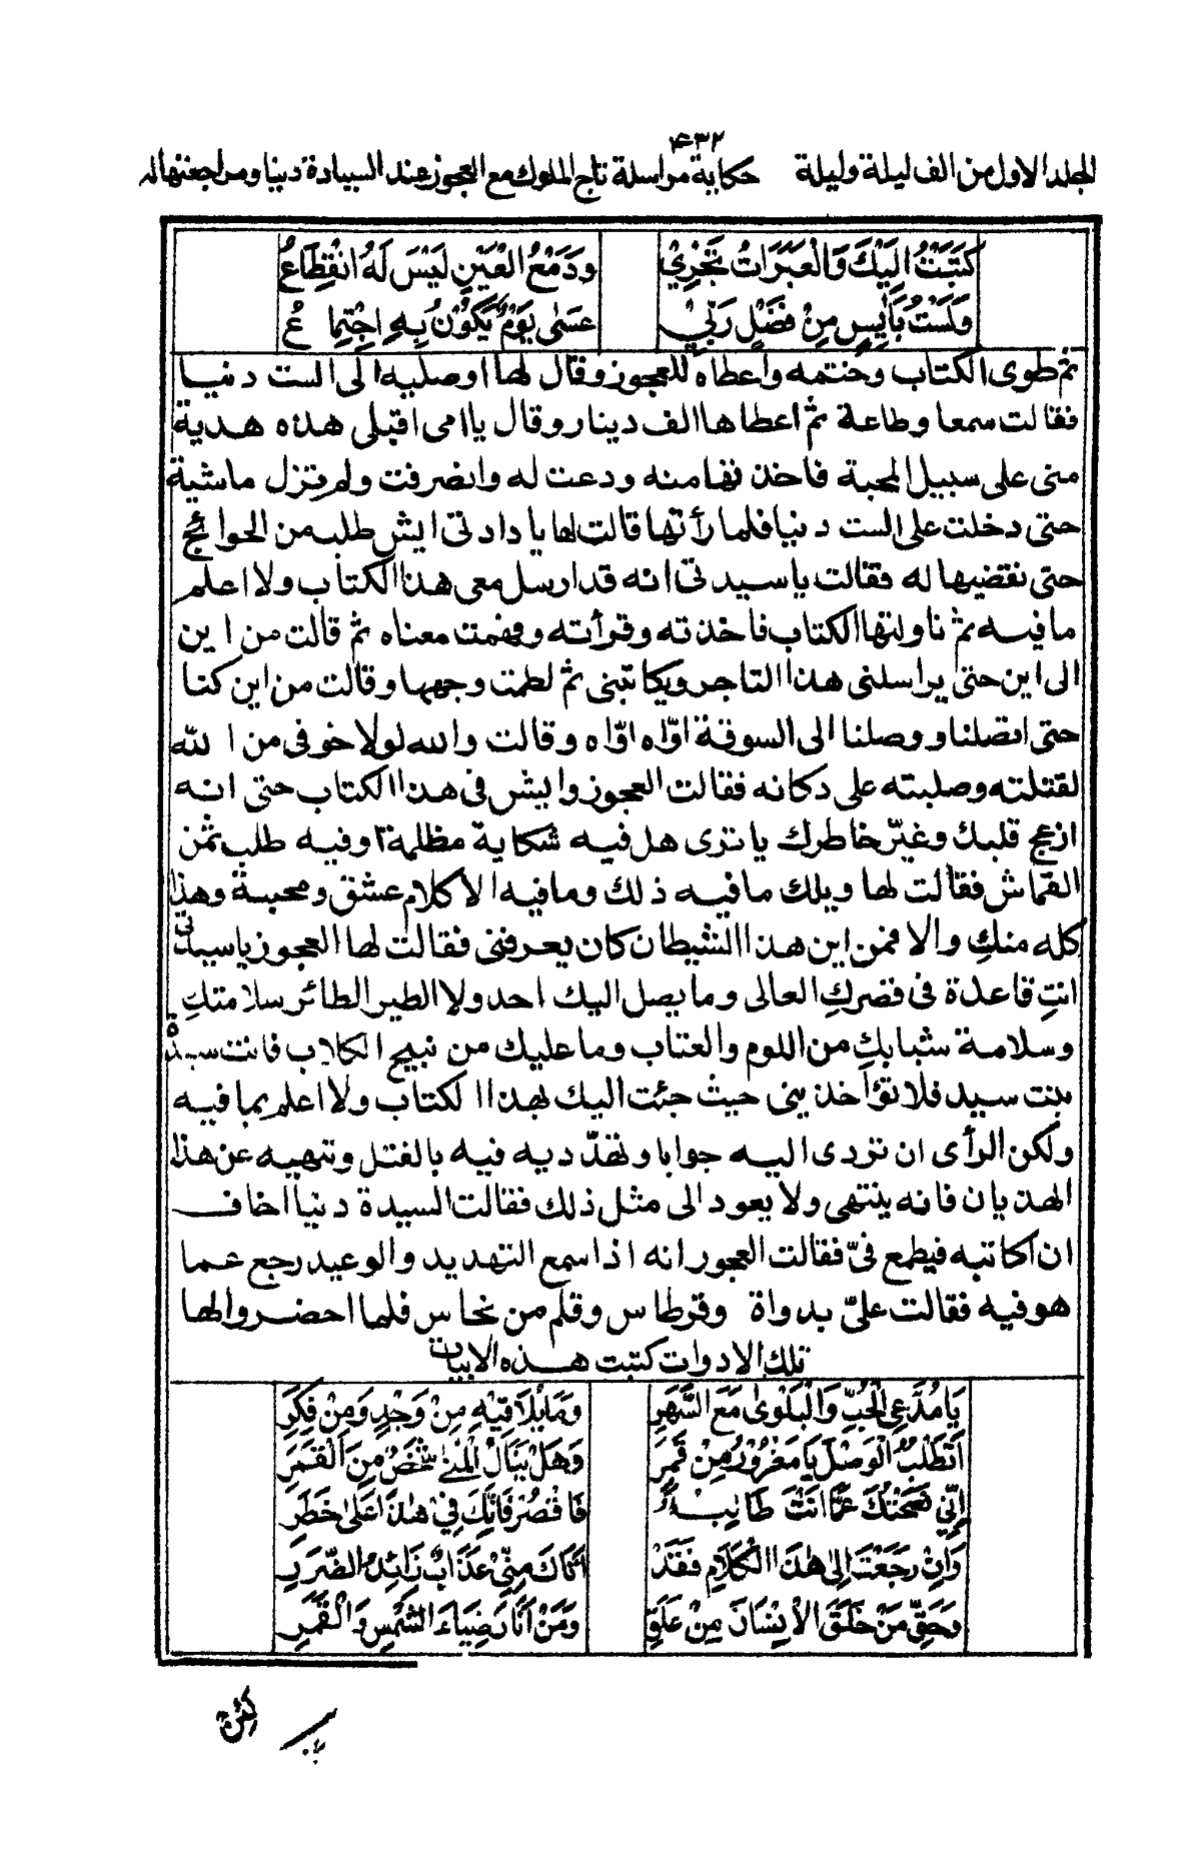 ۴۳۲
المجلد الاول من الف ليلة وليلة حكاية مراسلة تاج الملوك مع العجوز عند السيادة دنيا ومراجعتها له
كَتَبْتُ اِلَيْكَ وَالْعَبَرَاتُ تَجْرِيْ ودَمْعُ الْعَيْنِ لَيْسَ لَهُ انْقِطَاعُ
وَلَسْتُ بِآيِسٍ مِنْ فَضْلِ رَبِّيْ عَسٰى يَوْمٌ يَكُوْنُ بِهِ اجْتِمَا عُ
ثم طوى الكتاب وختمه واعطاه للعجوز وقال لها اوصليه الى الست دنيا
فقالت سمعا وطاعة ثم اعطاها الف دينار وقال يا امى اقبلى هذه هدية
منى على سبيل المحبة فاخذ تها منه ودعت له وانصرفت ولم تزل ماشية
حتى دخلت على الست دنيا فلما رأتها قالت لها يا دادتى ايش طلبه من الحوائج
حتى نقضيها له فقالت يا سيدتى انه قد ارسل معى هذا الكتاب ولا اعلم
ما فيه ثم ناولتها الكتاب فاخذته وقرأته وفهمت معناه ثم قالت من اين
الى اين حتى يراسلنى هذا التاجر ويكاتبنى ثم لطمت وجهها وقالت من اين كنا
حتى اتصلنا ووصلنا الى السوقة اوّاه اوّاه وقالت والله لولا خوفى من الله
لقتلته وصلبته على دكانه فقالت العجوز وايش فى هذا الكتاب حتى انه
ازعج قلبك وغيّر خاطرك يا ترى هل فيه شكاية مظلمة اوفيه طلب ثمن
القماش فقالت لها ويلك ما فيه ذلك وما فيه الا كلام عشق ومحبة وهذا
كله منكِ والا فمن اين هذا الشيطان كان يعرفنى فقالت لها العجوز يا سيدتى
انتِ قاعدة فى قصركِ العالى وما يصل اليك احد ولا الطير الطائر سلامتكِ
وسلامة شبابكِ من اللوم والعتاب وما عليك من نبيح الكلاب فانت سيدة
بنت سيد فلا تؤاخذينى حيث جئت اليك بهذا الكتاب ولا اعلم بما فيه
ولكن الرأى ان تردى اليه جوابا وتهدّديه فيه بالقتل وتنهيه عن هذا
الهذيان فانه ينتهى ولا يعود الى مثل ذلك فقالت السيدة دنيا اخاف
ان اكاتبه فيطمع فىّ فقالت العجوز انه اذا سمع التهديد والوعيد رجع عما
هو فيه فقالت علىّ بدواة وقرطاس وقلم من نحاس فلما احضروا لها
تلك الادوات كتبت هذه الابيات
يَا مُدَّعِى الْحُبِّ وَالْبَلْوٰى مَعَ السَّهَرِ وَمَا يُلَاقِيْهِ مِنْ وَجْدٍ وَمِنْ فِكَرِ
اَتَطْلُبُ الْوَصْلَ يَا مَغْرُوْرُ مِنْ قَمَرٍ وَهَلْ يَنَالُ الْمُنٰى شَخْصٌ مِنَ الْقَمَرِ
اِنِّي نَصَحْتُكَ عَمَّا اَنْتَ طَالِبُهُ فَاقْصُرْ فَاِنَّكَ فِيْ هٰذَا عَلٰى خَطَرِ
وَاِنْ رَجَعْتَ اِلٰى هٰذَا الْكَلَامِ فَقَدْ اَتَاكَ مِنِّيْ عَذَابٌ زَائِدُ الضَّرَرِ
وَحَقِّ مَنْ خَلَقَ الْاِنْسَانَ مِنْ عَلَقٍ وَمَنْ اَنَارَ ضِيَاءَ الشَّمْسِ وَالْقَمَرِ
لَئِنْ